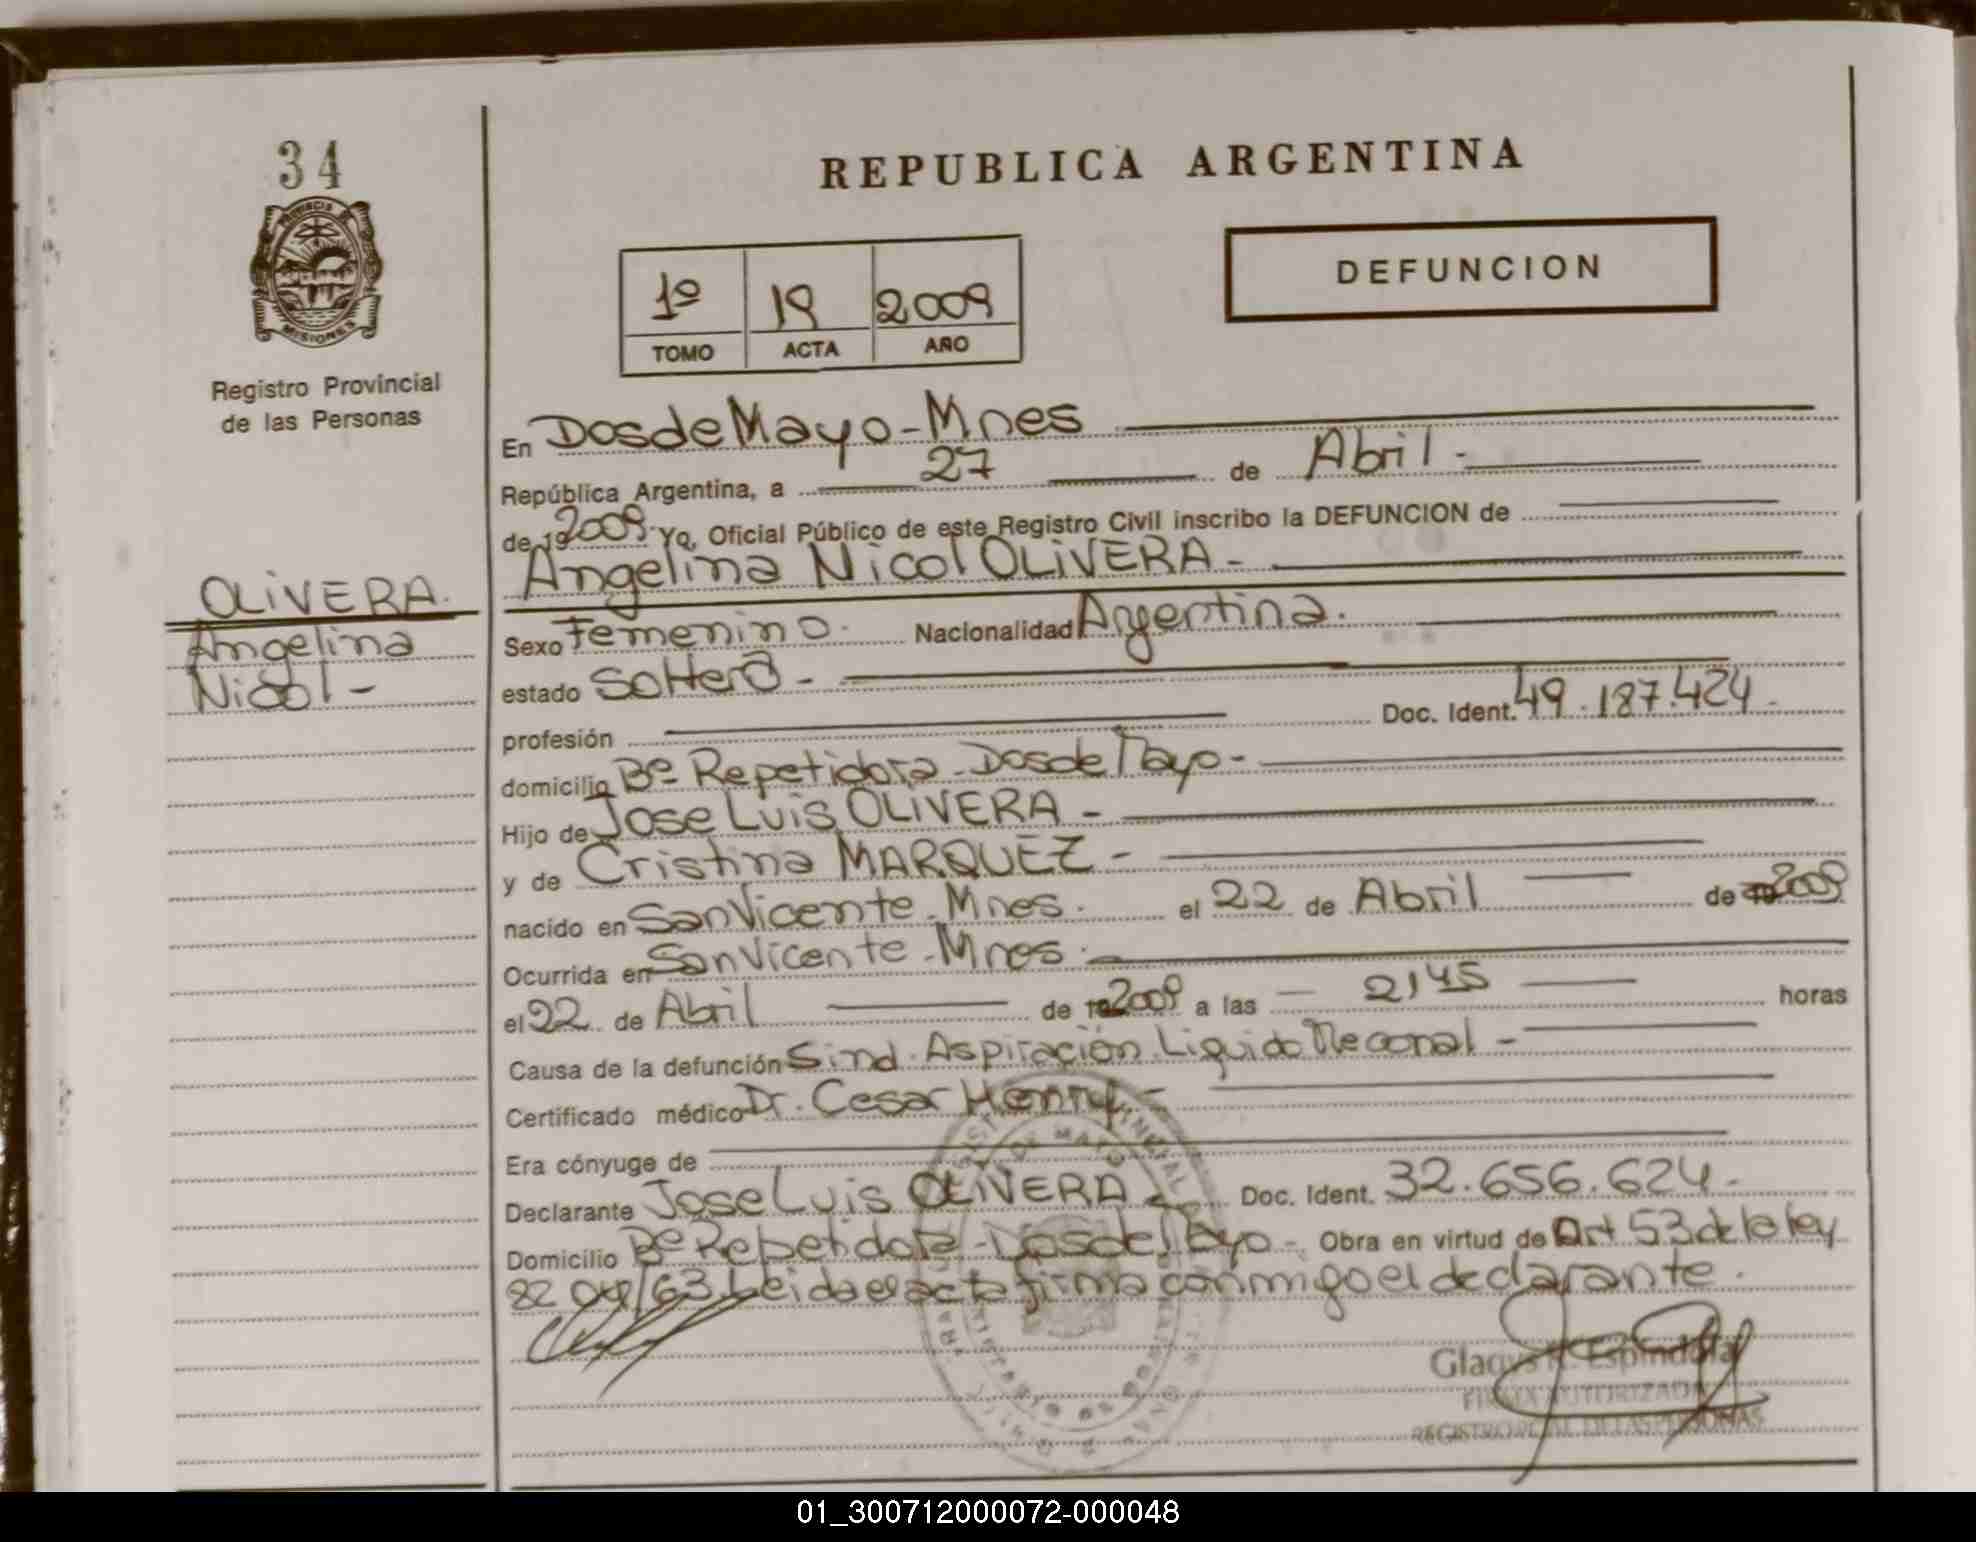 34
PROVINCIA DE
MISIONES
Registro Provincial
de las Personas
OLIVERA.
Angelina
Nicol -
REPUBLICA ARGENTINA
DEFUNCION
1º 19 2009
TOMO ACTA AÑO
En Dos de Mayo - Mnes
República Argentina, a 27 de Abril -
de 19 2009 Yo, Oficial Público de este Registro Civil inscribo la DEFUNCION de
Angelina Nicol OLIVERA -
Sexo Femenino. Nacionalidad Argentina.
estado Soltera -
profesión Doc. Ident. 49.187.424 -
domicilio Bº Repetidora - Dos de Mayo -
Hijo de Jose Luis OLIVERA -
y de Cristina MARQUEZ -
nacido en San Vicente - Mnes. el 22 de Abril de 2009
Ocurrida en San Vicente - Mnes. -
el 22 de Abril de 2009 a las 21,45 horas
Causa de la defunción Sind. Aspiración Liquido Meconal -
Certificado médico Dr. Cesar Henry. -
Era cónyuge de
Declarante Jose Luis OLIVERA Doc. Ident. 32.656.624 -
Domicilio Bº Repetidora - Dos de Mayo - Obra en virtud de Art 53 de la ley
82 04/63. Leida el acta firma conmigo el declarante.
Gladys R. Espindola
FIRMA AUTORIZADA
REGISTRO PCIAL. DE LAS PERSONAS
01_300712000072-000048